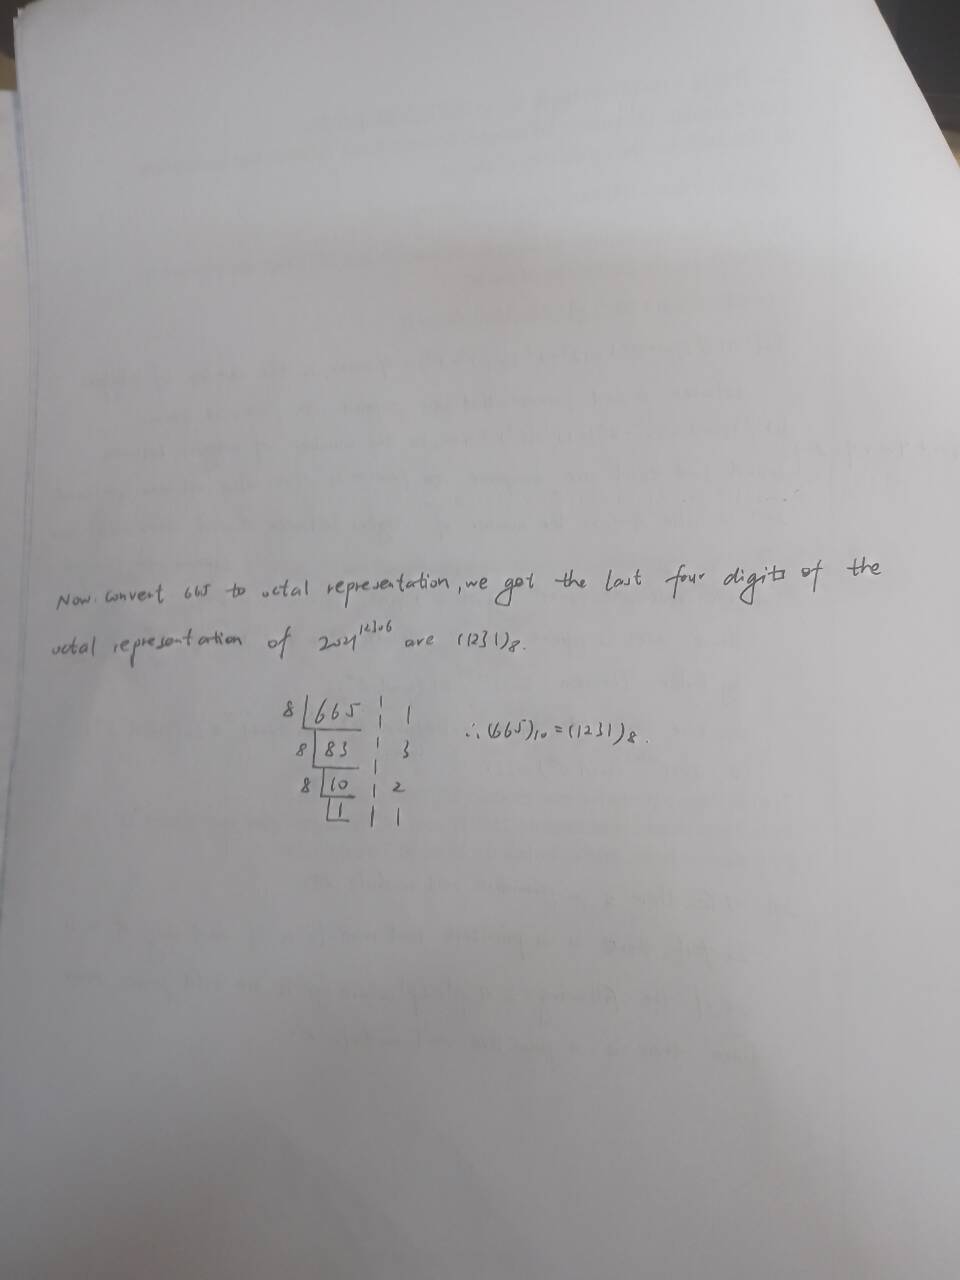 Now. Convert 665 to octal representation, we got the last four digits of the
octal representation of 2021^12306 are (1231)8.
8 665 1
8 83 3
8 10 2
1 1
∴ (665)10 = (1231)8.